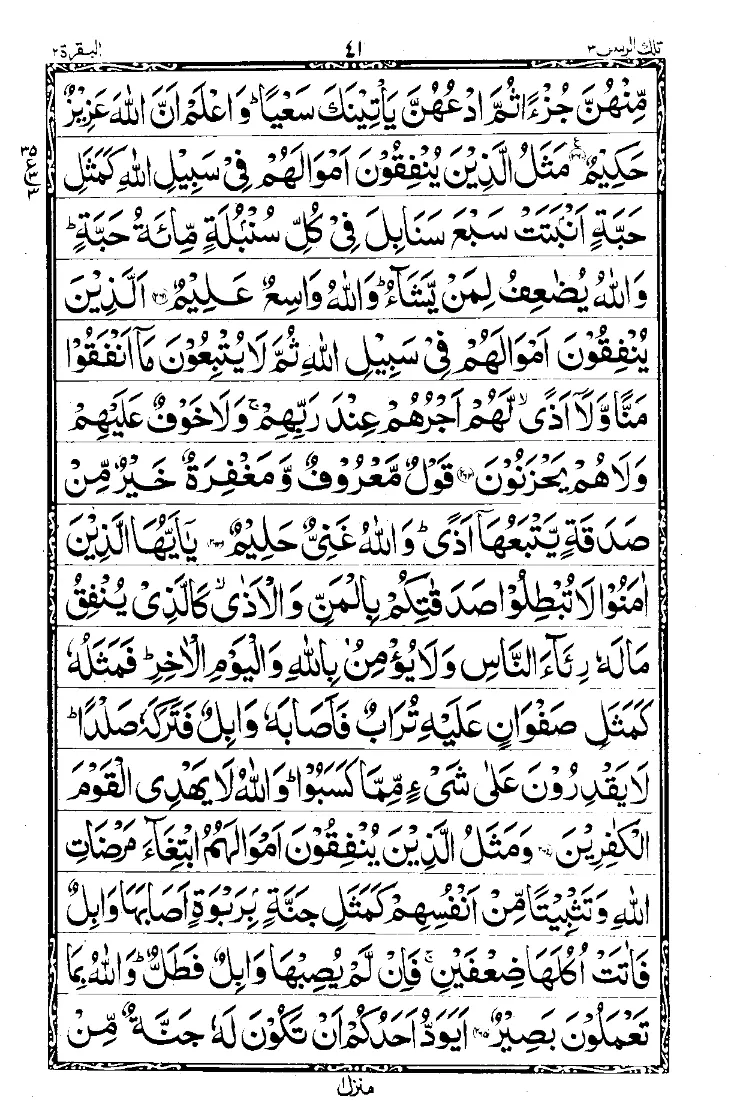 تلك الرسل ٣
٤١
البقرة ٢
مِّنْهُنَّ جُزْءًا ثُمَّ ادْعُهُنَّ يَأْتِيْنَكَ سَعْيًا ؕ وَاعْلَمْ اَنَّ اللّٰهَ عَزِيْزٌ
حَكِيْمٌ ﴿۲۶۰﴾ مَثَلُ الَّذِيْنَ يُنْفِقُوْنَ اَمْوَالَهُمْ فِيْ سَبِيْلِ اللّٰهِ كَمَثَلِ
حَبَّةٍ اَنْۢبَتَتْ سَبْعَ سَنَابِلَ فِيْ كُلِّ سُنْۢبُلَةٍ مِّائَةُ حَبَّةٍ ؕ
وَاللّٰهُ يُضٰعِفُ لِمَنْ يَّشَآءُ ؕ وَاللّٰهُ وَاسِعٌ عَلِيْمٌ ﴿۲۶۱﴾ اَلَّذِيْنَ
يُنْفِقُوْنَ اَمْوَالَهُمْ فِيْ سَبِيْلِ اللّٰهِ ثُمَّ لَا يُتْبِعُوْنَ مَآ اَنْفَقُوْا
مَنًّا وَّلَآ اَذًى ۙ لَّهُمْ اَجْرُهُمْ عِنْدَ رَبِّهِمْ ۚ وَلَا خَوْفٌ عَلَيْهِمْ
وَلَا هُمْ يَحْزَنُوْنَ ﴿۲۶۲﴾ قَوْلٌ مَّعْرُوْفٌ وَّمَغْفِرَةٌ خَيْرٌ مِّنْ
صَدَقَةٍ يَّتْبَعُهَآ اَذًى ؕ وَاللّٰهُ غَنِيٌّ حَلِيْمٌ ﴿۲۶۳﴾ يٰٓاَيُّهَا الَّذِيْنَ
اٰمَنُوْا لَا تُبْطِلُوْا صَدَقٰتِكُمْ بِالْمَنِّ وَالْاَذٰى ۙ كَالَّذِيْ يُنْفِقُ
مَالَهٗ رِئَآءَ النَّاسِ وَلَا يُؤْمِنُ بِاللّٰهِ وَالْيَوْمِ الْاٰخِرِ ؕ فَمَثَلُهٗ
كَمَثَلِ صَفْوَانٍ عَلَيْهِ تُرَابٌ فَاَصَابَهٗ وَابِلٌ فَتَرَكَهٗ صَلْدًا ؕ
لَا يَقْدِرُوْنَ عَلٰى شَيْءٍ مِّمَّا كَسَبُوْا ؕ وَاللّٰهُ لَا يَهْدِى الْقَوْمَ
الْكٰفِرِيْنَ ﴿۲۶۴﴾ وَمَثَلُ الَّذِيْنَ يُنْفِقُوْنَ اَمْوَالَهُمُ ابْتِغَآءَ مَرْضَاتِ
اللّٰهِ وَتَثْبِيْتًا مِّنْ اَنْفُسِهِمْ كَمَثَلِ جَنَّةٍۭ بِرَبْوَةٍ اَصَابَهَا وَابِلٌ
فَاٰتَتْ اُكُلَهَا ضِعْفَيْنِ ۚ فَاِنْ لَّمْ يُصِبْهَا وَابِلٌ فَطَلٌّ ؕ وَاللّٰهُ بِمَا
تَعْمَلُوْنَ بَصِيْرٌ ﴿۲۶۵﴾ اَيَوَدُّ اَحَدُكُمْ اَنْ تَكُوْنَ لَهٗ جَنَّةٌ مِّنْ
منزل ١